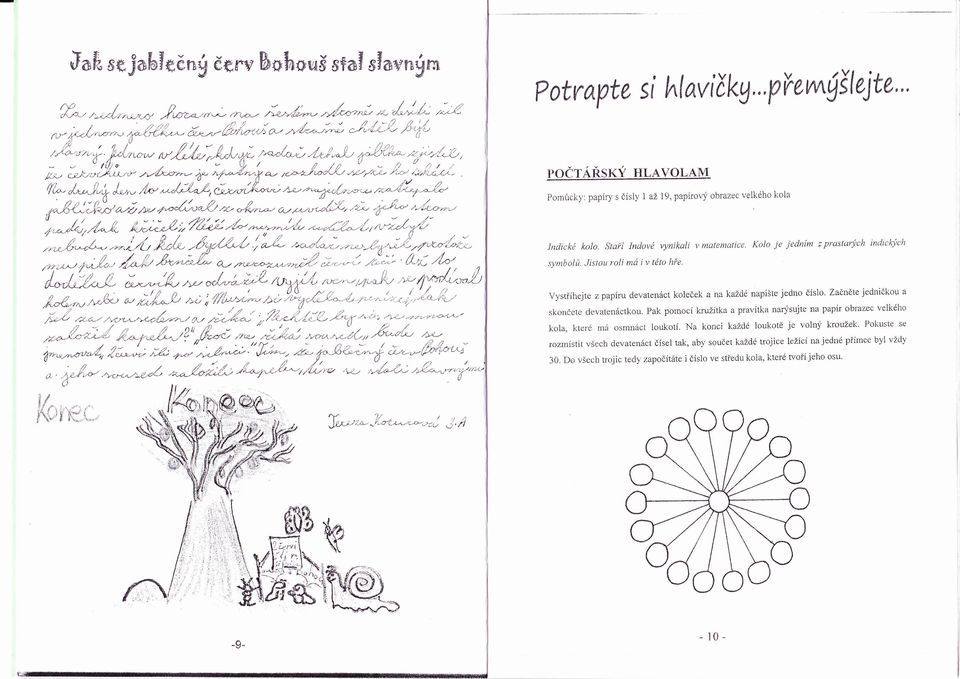 Jak se jablečný červ Bohouš stal slavným
Za sedmero horami na šestém stromě z deseti žil
v jednom jablku červ Bohouš a strašně chtěl být
slavný. Jednou v létě, když sadař trhal jablka, zjistil,
že červíkův strom je špatný a rozhodl se, že ho skácí.
Na druhý den to udělal, červíkovi se najednou zatřepalo
jablíčko až se podíval z okna a uviděl, že jeho strom
padá, tak křičel: „Néé! to nesmíte udělat, vždyť
nebudu mít, kde bydlet!", ale sadař neslyšel, protože
mu pila tak brněla a nerozuměl červí řeči. Až to
dodělal červík se odvážil vyjít ven, pak se podíval
kolem sebe a říkal si: Musím si vydělat peníze, tak
šel za sousedem a říká: „Nechtěl bys si se mnou
založit kapelu?" „Proč ne říká soused, bude se
jmenovat 2 červi šli po silnici." Tím, že jablečný červ Bohouš
a jeho soused založili kapelu, tím se stali slavnými
Konec
Konec
Tereza 3.A
2 červi
-9-
Potrapte si hlavičky...přemýšlejte...
POČTÁŘSKÝ HLAVOLAM
Pomůcky: papíry s čísly 1 až 19, papírový obrazec velkého kola
Indické kolo. Staří Indové vynikali v matematice. Kolo je jedním z prastarých indických
symbolů. Jistou roli má i v této hře.
Vystřihejte z papíru devatenáct koleček a na každé napište jedno číslo. Začněte jedničkou a
skončete devatenáctkou. Pak pomocí kružítka a pravítka narýsujte na papír obrazec velkého
kola, které má osmnáct loukotí. Na konci každé loukotě je volný kroužek. Pokuste se
rozmístit všech devatenáct čísel tak, aby součet každé trojice ležící na jedné přímce byl vždy
30. Do všech trojic tedy započítáte i číslo ve středu kola, které tvoří jeho osu.
- 10 -